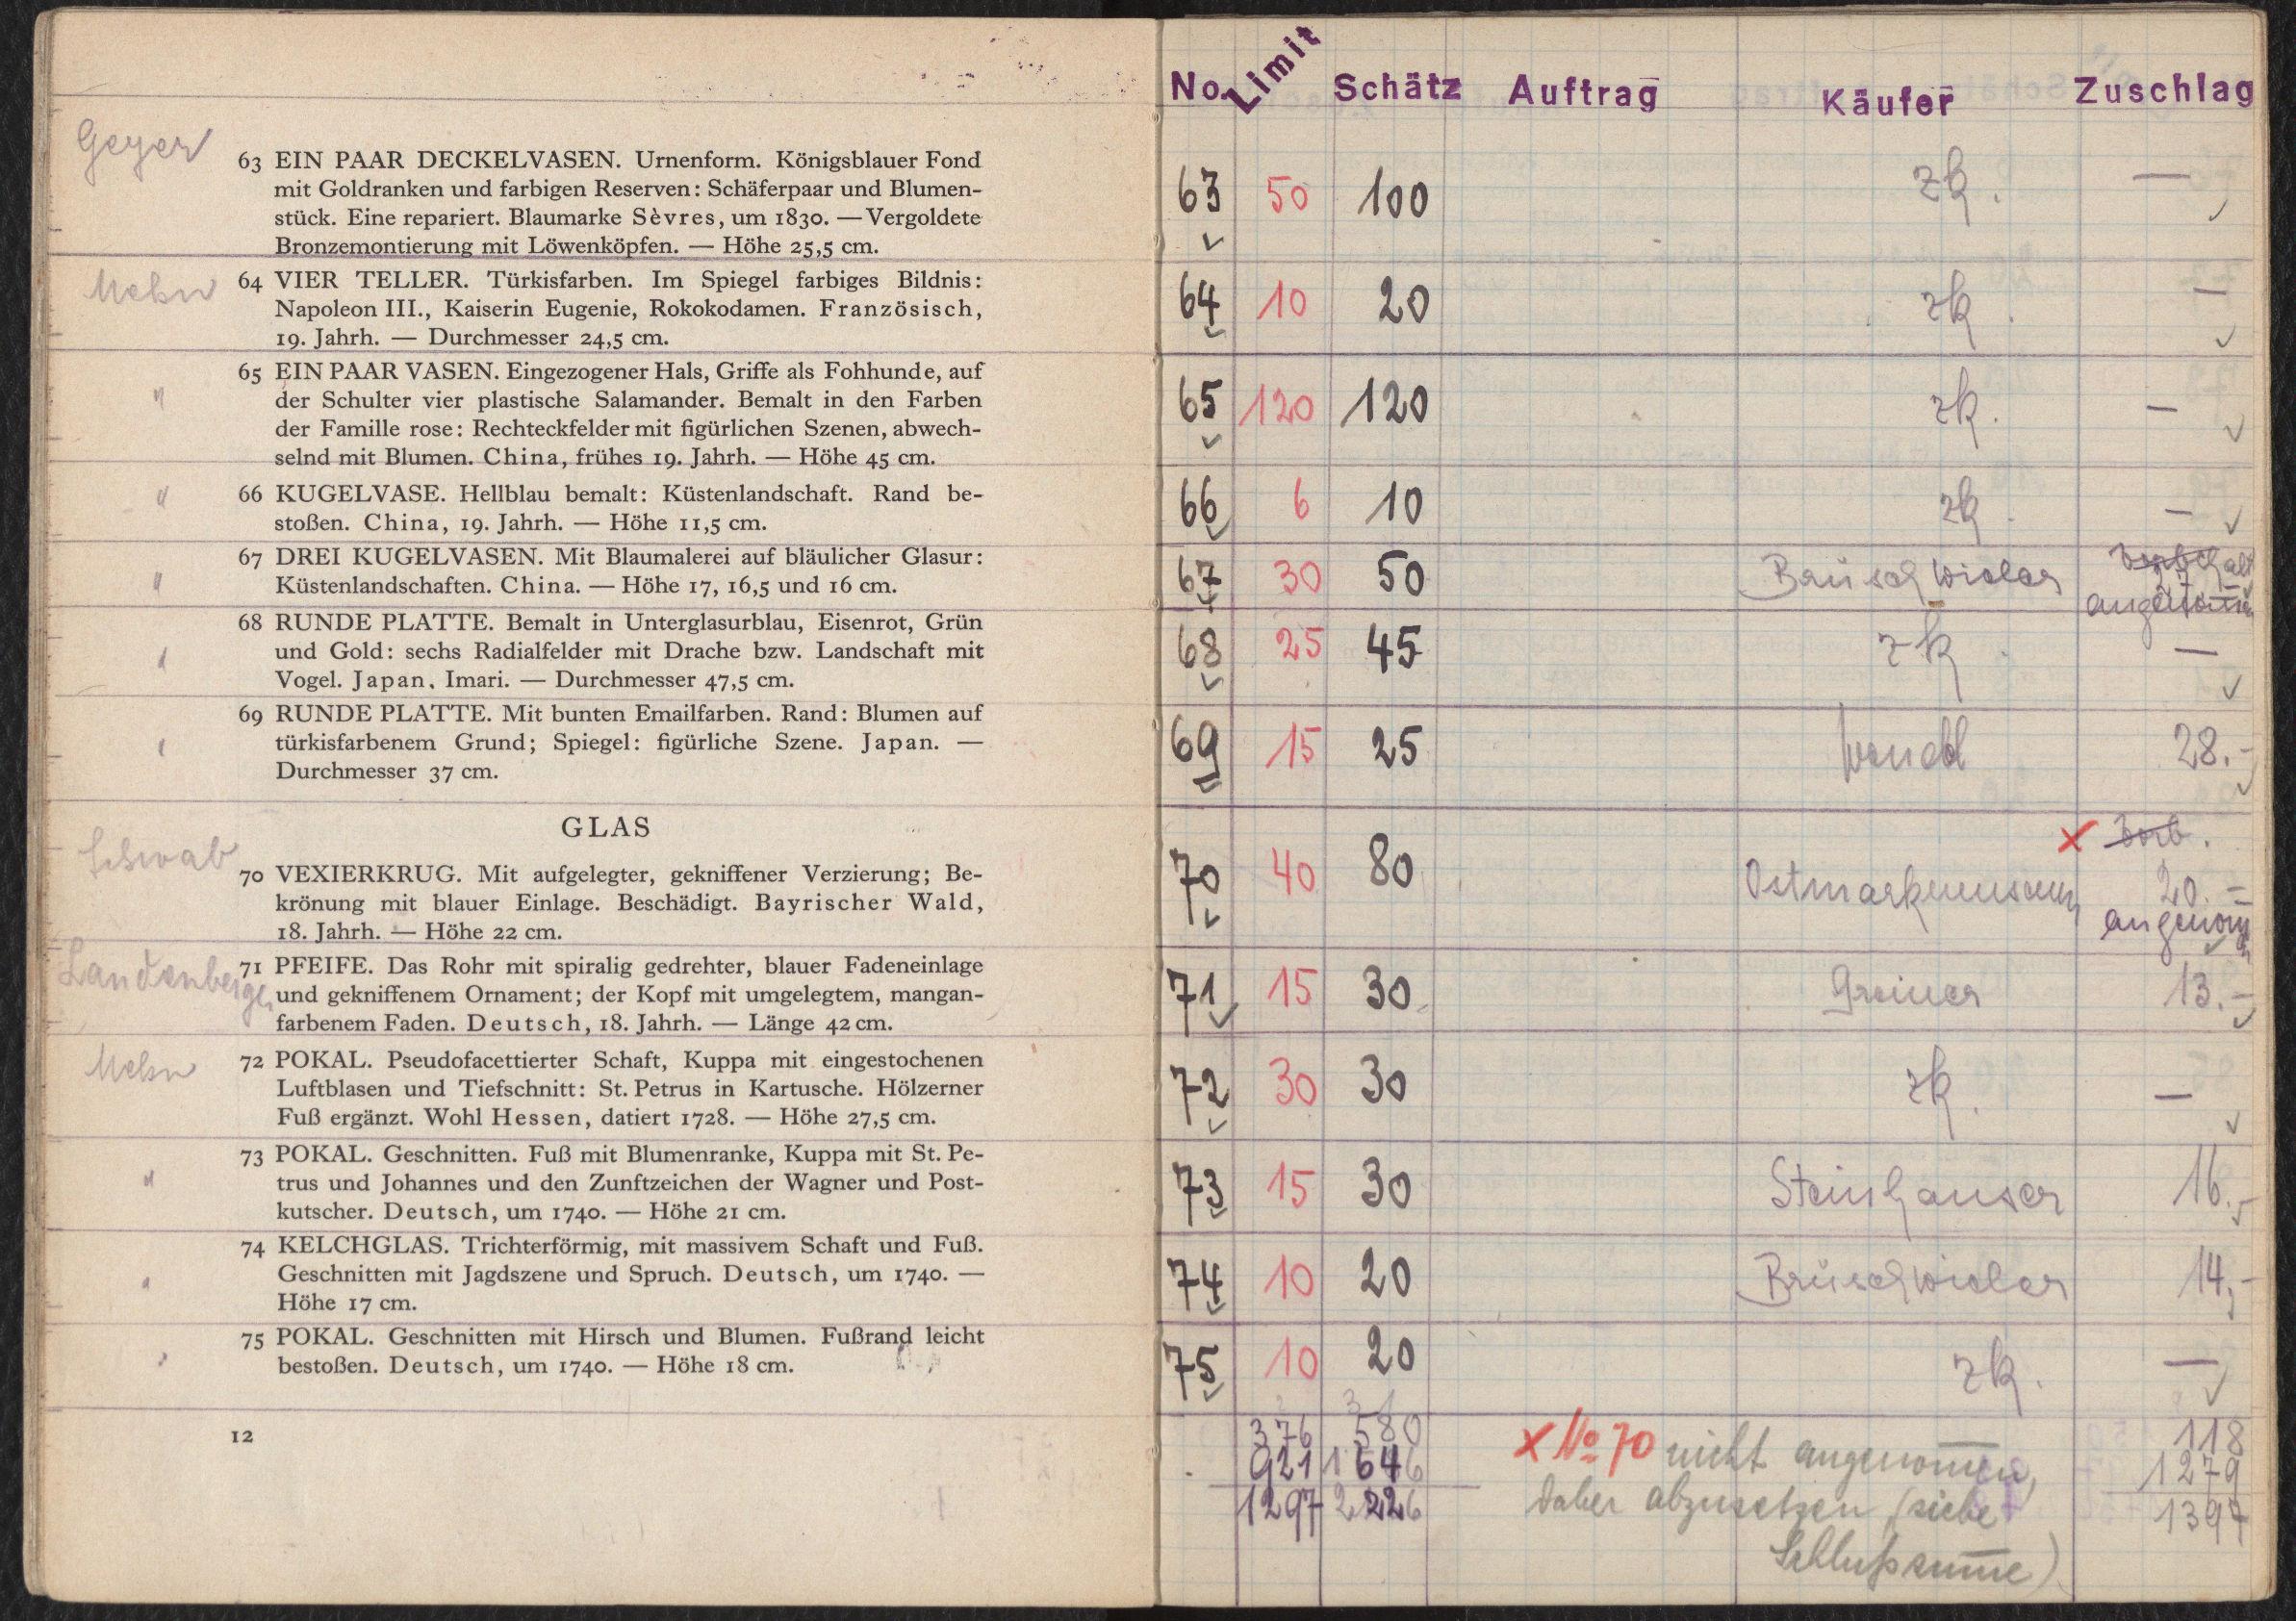 Geyer
63 EIN PAAR DECKELVASEN. Urnenform. Königsblauer Fond
mit Goldranken und farbigen Reserven: Schäferpaar und Blumen-
stück. Eine repariert. Blaumarke Sèvres, um 1830. — Vergoldete
Bronzemontierung mit Löwenköpfen. — Höhe 25,5 cm.
64 VIER TELLER. Türkisfarben. Im Spiegel farbiges Bildnis:
Napoleon III., Kaiserin Eugenie, Rokokodamen. Französisch,
19. Jahrh. — Durchmesser 24,5 cm.
" 65 EIN PAAR VASEN. Eingezogener Hals, Griffe als Fohhunde, auf
der Schulter vier plastische Salamander. Bemalt in den Farben
der Famille rose: Rechteckfelder mit figürlichen Szenen, abwech-
selnd mit Blumen. China, frühes 19. Jahrh. — Höhe 45 cm.
" 66 KUGELVASE. Hellblau bemalt: Küstenlandschaft. Rand be-
stoßen. China, 19. Jahrh. — Höhe 11,5 cm.
" 67 DREI KUGELVASEN. Mit Blaumalerei auf bläulicher Glasur:
Küstenlandschaften. China. — Höhe 17, 16,5 und 16 cm.
" 68 RUNDE PLATTE. Bemalt in Unterglasurblau, Eisenrot, Grün
und Gold: sechs Radialfelder mit Drache bzw. Landschaft mit
Vogel. Japan, Imari. — Durchmesser 47,5 cm.
" 69 RUNDE PLATTE. Mit bunten Emailfarben. Rand: Blumen auf
türkisfarbenem Grund; Spiegel: figürliche Szene. Japan. —
Durchmesser 37 cm.
GLAS
Schwab
70 VEXIERKRUG. Mit aufgelegter, gekniffener Verzierung; Be-
krönung mit blauer Einlage. Beschädigt. Bayrischer Wald,
18. Jahrh. — Höhe 22 cm.
Landenberger
71 PFEIFE. Das Rohr mit spiralig gedrehter, blauer Fadeneinlage
und gekniffenem Ornament; der Kopf mit umgelegtem, mangan-
farbenem Faden. Deutsch, 18. Jahrh. — Länge 42 cm.
72 POKAL. Pseudofacettierter Schaft, Kuppa mit eingestochenen
Luftblasen und Tiefschnitt: St. Petrus in Kartusche. Hölzerner
Fuß ergänzt. Wohl Hessen, datiert 1728. — Höhe 27,5 cm.
" 73 POKAL. Geschnitten. Fuß mit Blumenranke, Kuppa mit St. Pe-
trus und Johannes und den Zunftzeichen der Wagner und Post-
kutscher. Deutsch, um 1740. — Höhe 21 cm.
" 74 KELCHGLAS. Trichterförmig, mit massivem Schaft und Fuß.
Geschnitten mit Jagdszene und Spruch. Deutsch, um 1740. —
Höhe 17 cm.
" 75 POKAL. Geschnitten mit Hirsch und Blumen. Fußrand leicht
bestoßen. Deutsch, um 1740. — Höhe 18 cm.
12
No. Limit Schätz Auftrag Käufer Zuschlag
63 50 100 zk. —
64 10 20 zk. —
65 120 120 zk. —
66 6 10 zk. —
67 30 50 Brüschwieler 27.-
angenommen
68 25 45 zk. —
69 15 25 Wendl 28.-
x Vorb.
70 40 80 Ostmarkmuseum 20.-
angenom
71 15 30 Greiner 13.-
72 30 30 zk. —
73 15 30 Steinhauser 16.-
74 10 20 Brüschwieler 14.-
75 10 20 zk. —
376 580 118
921 1646 1279
1297 2226 1397
x No 70 nicht angenommen,
daher abzusetzen (siehe
Schlußsumme)